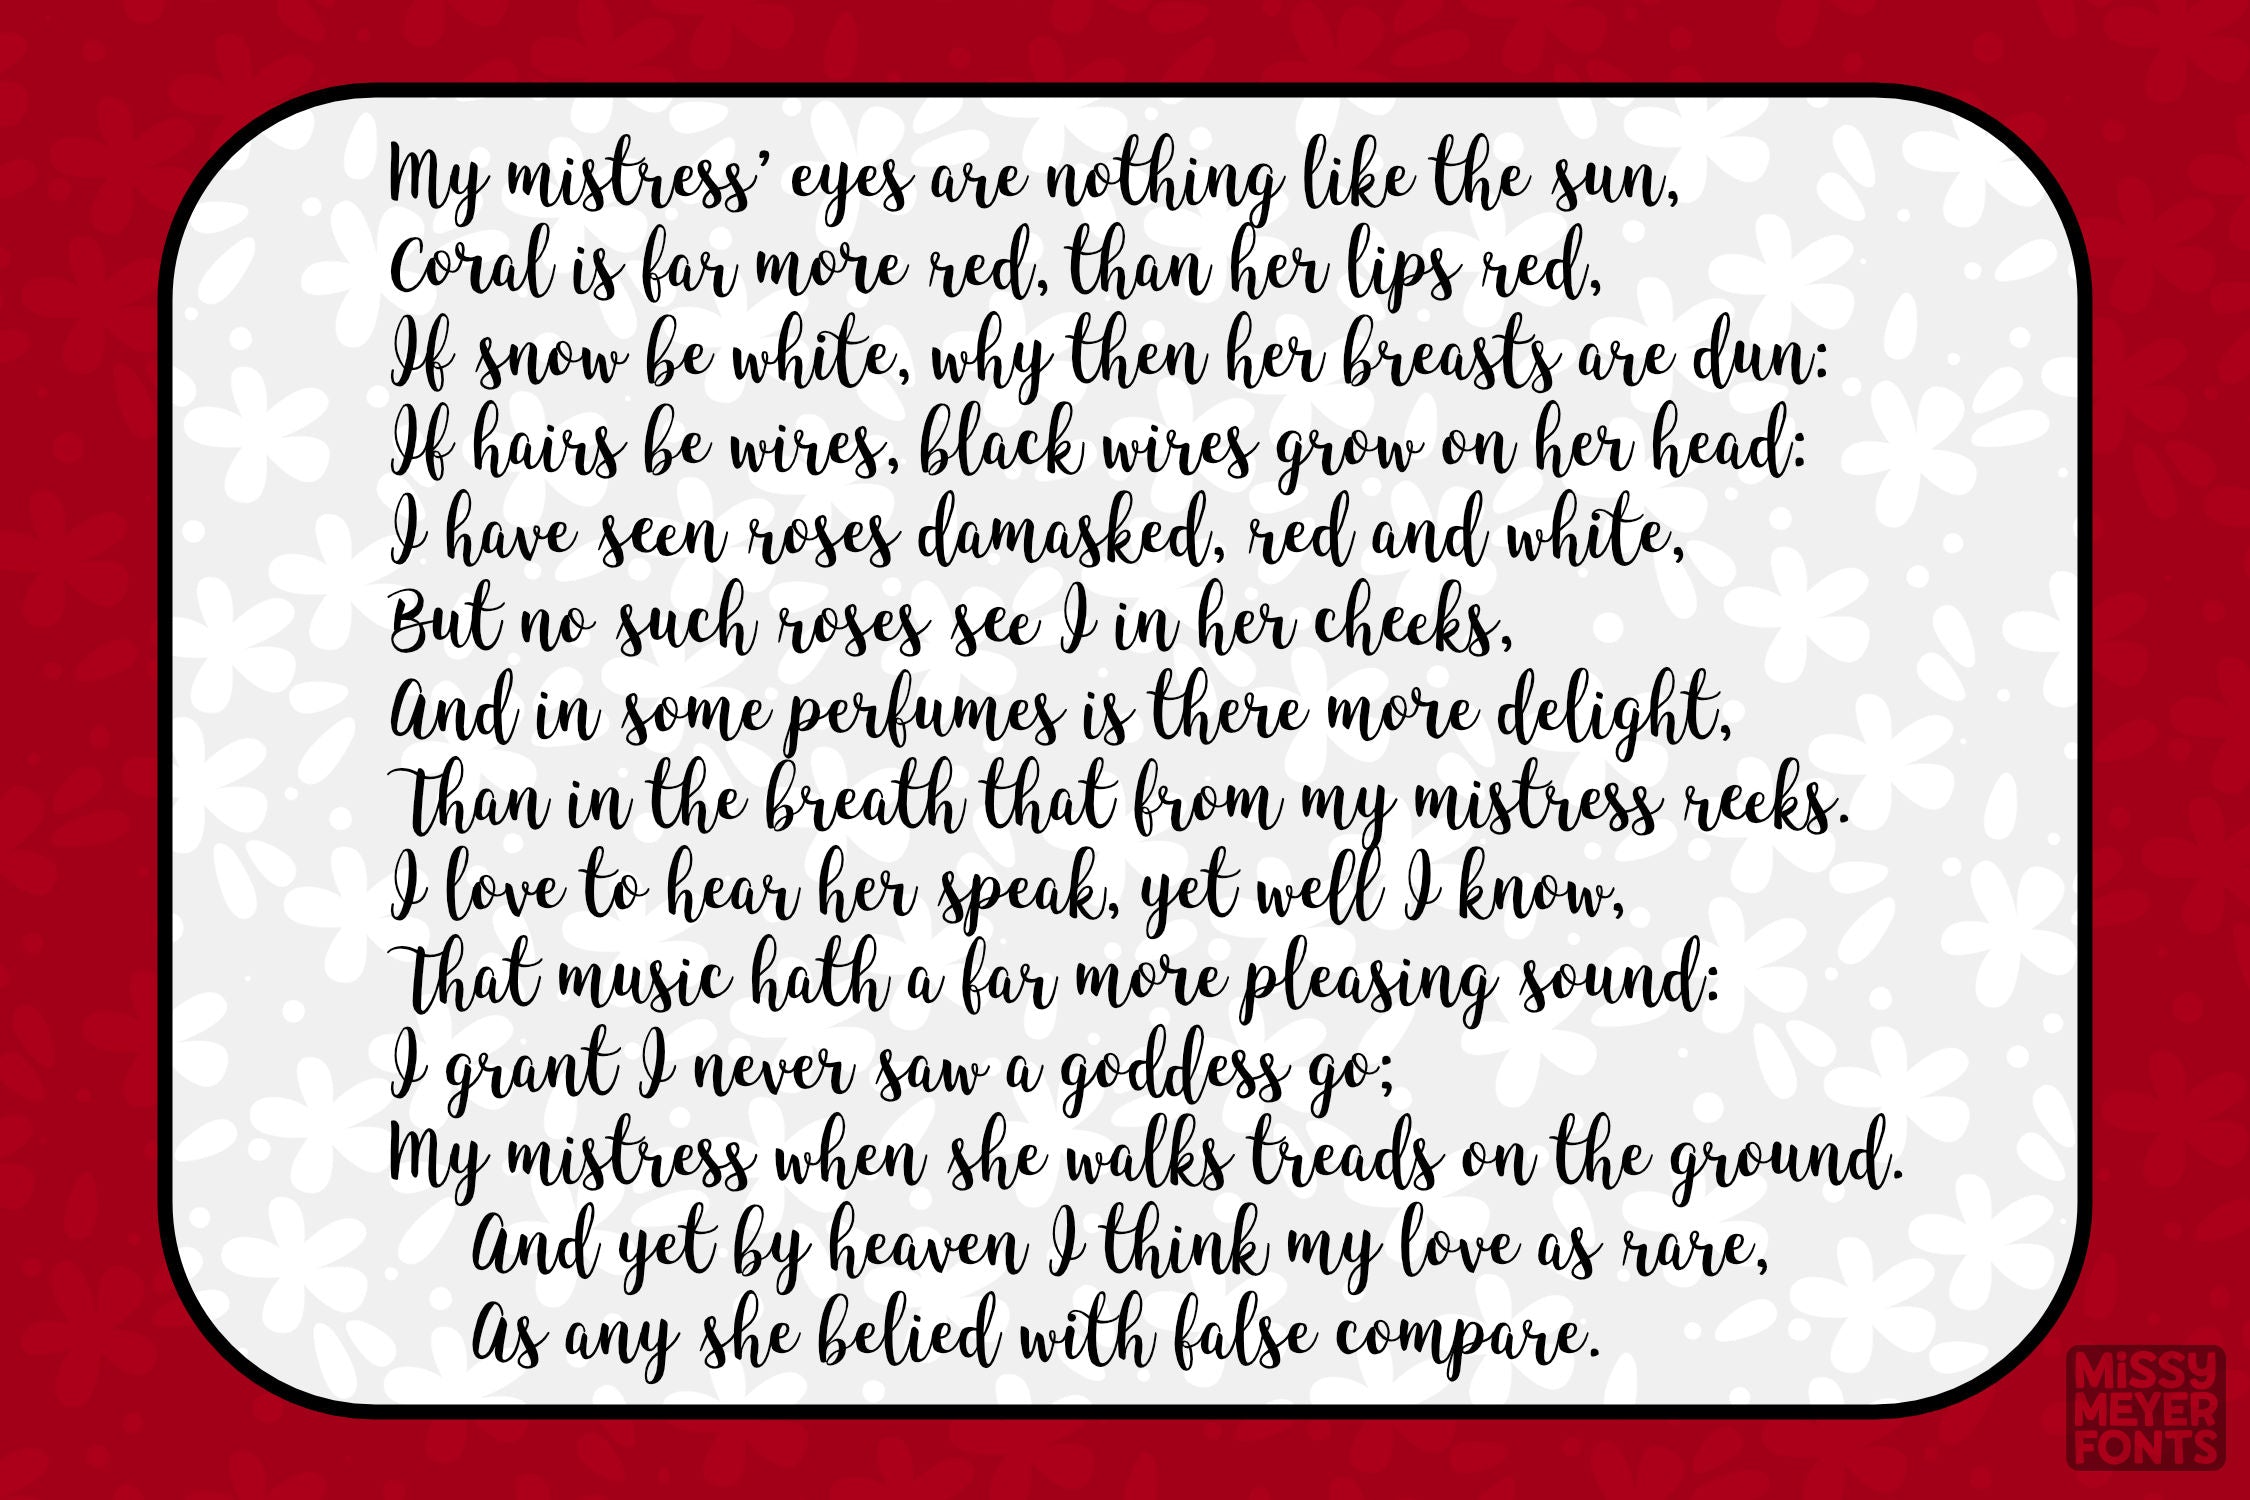 My mistress’ eyes are nothing like the sun,
Coral is far more red, than her lips red,
If snow be white, why then her breasts are dun:
If hairs be wires, black wires grow on her head:
I have seen roses damasked, red and white,
But no such roses see I in her cheeks,
And in some perfumes is there more delight,
Than in the breath that from my mistress reeks.
I love to hear her speak, yet well I know,
That music hath a far more pleasing sound:
I grant I never saw a goddess go;
My mistress when she walks treads on the ground.
And yet by heaven I think my love as rare,
As any she belied with false compare.
MISSY
MEYER
FONTS